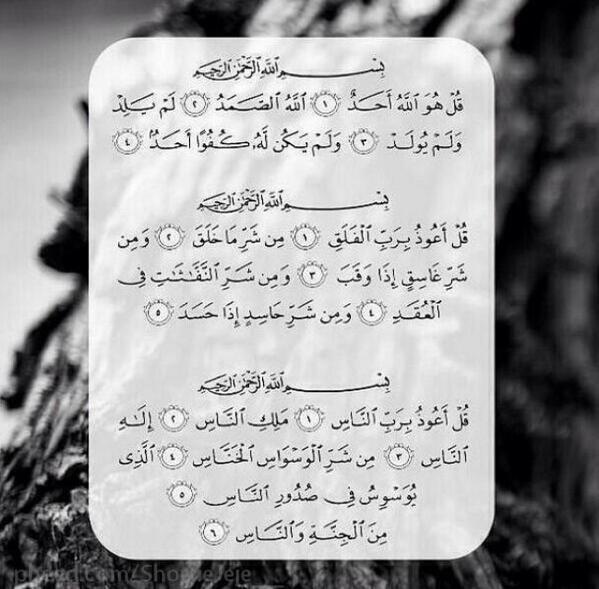 بِسْمِ اللَّهِ الرَّحْمَٰنِ الرَّحِيمِ
قُلْ هُوَ ٱللَّهُ أَحَدٌ ١ ٱللَّهُ ٱلصَّمَدُ ٢ لَمْ يَلِدْ
وَلَمْ يُولَدْ ٣ وَلَمْ يَكُن لَّهُۥ كُفُوًا أَحَدٌۢ ٤
بِسْمِ اللَّهِ الرَّحْمَٰنِ الرَّحِيمِ
قُلْ أَعُوذُ بِرَبِّ ٱلْفَلَقِ ١ مِن شَرِّ مَا خَلَقَ ٢ وَمِن
شَرِّ غَاسِقٍ إِذَا وَقَبَ ٣ وَمِن شَرِّ ٱلنَّفَّٰثَٰتِ فِى
ٱلْعُقَدِ ٤ وَمِن شَرِّ حَاسِدٍ إِذَا حَسَدَ ٥
بِسْمِ اللَّهِ الرَّحْمَٰنِ الرَّحِيمِ
قُلْ أَعُوذُ بِرَبِّ ٱلنَّاسِ ١ مَلِكِ ٱلنَّاسِ ٢ إِلَٰهِ
ٱلنَّاسِ ٣ مِن شَرِّ ٱلْوَسْوَاسِ ٱلْخَنَّاسِ ٤ ٱلَّذِى
يُوَسْوِسُ فِى صُدُورِ ٱلنَّاسِ ٥
مِنَ ٱلْجِنَّةِ وَٱلنَّاسِ ٦